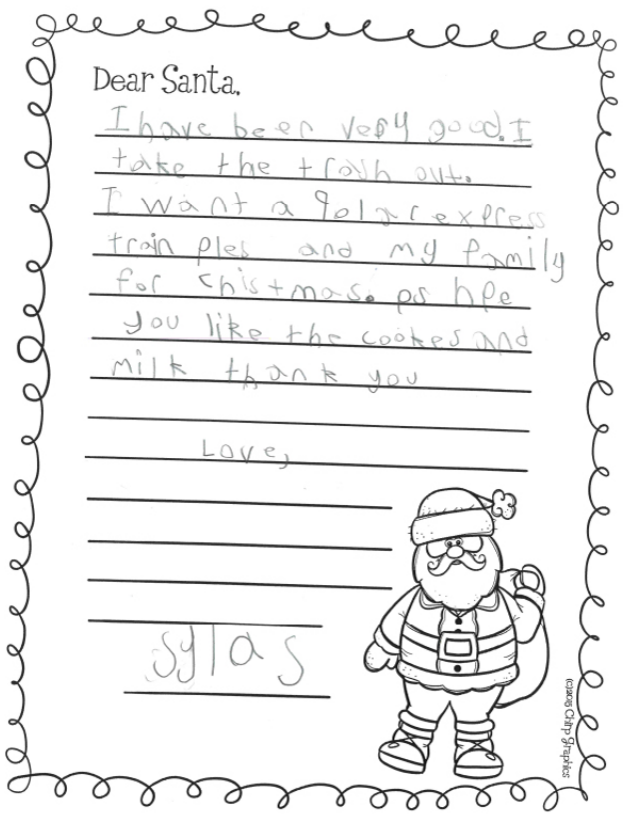 Dear Santa,
I have been very good. I
take the trash out.
I want a Polar express
train ples and my family
for Chistmas. ps hpe
you like the cookes and
milk thank you
Love,
sylas
(c)2016 Chirp Graphics